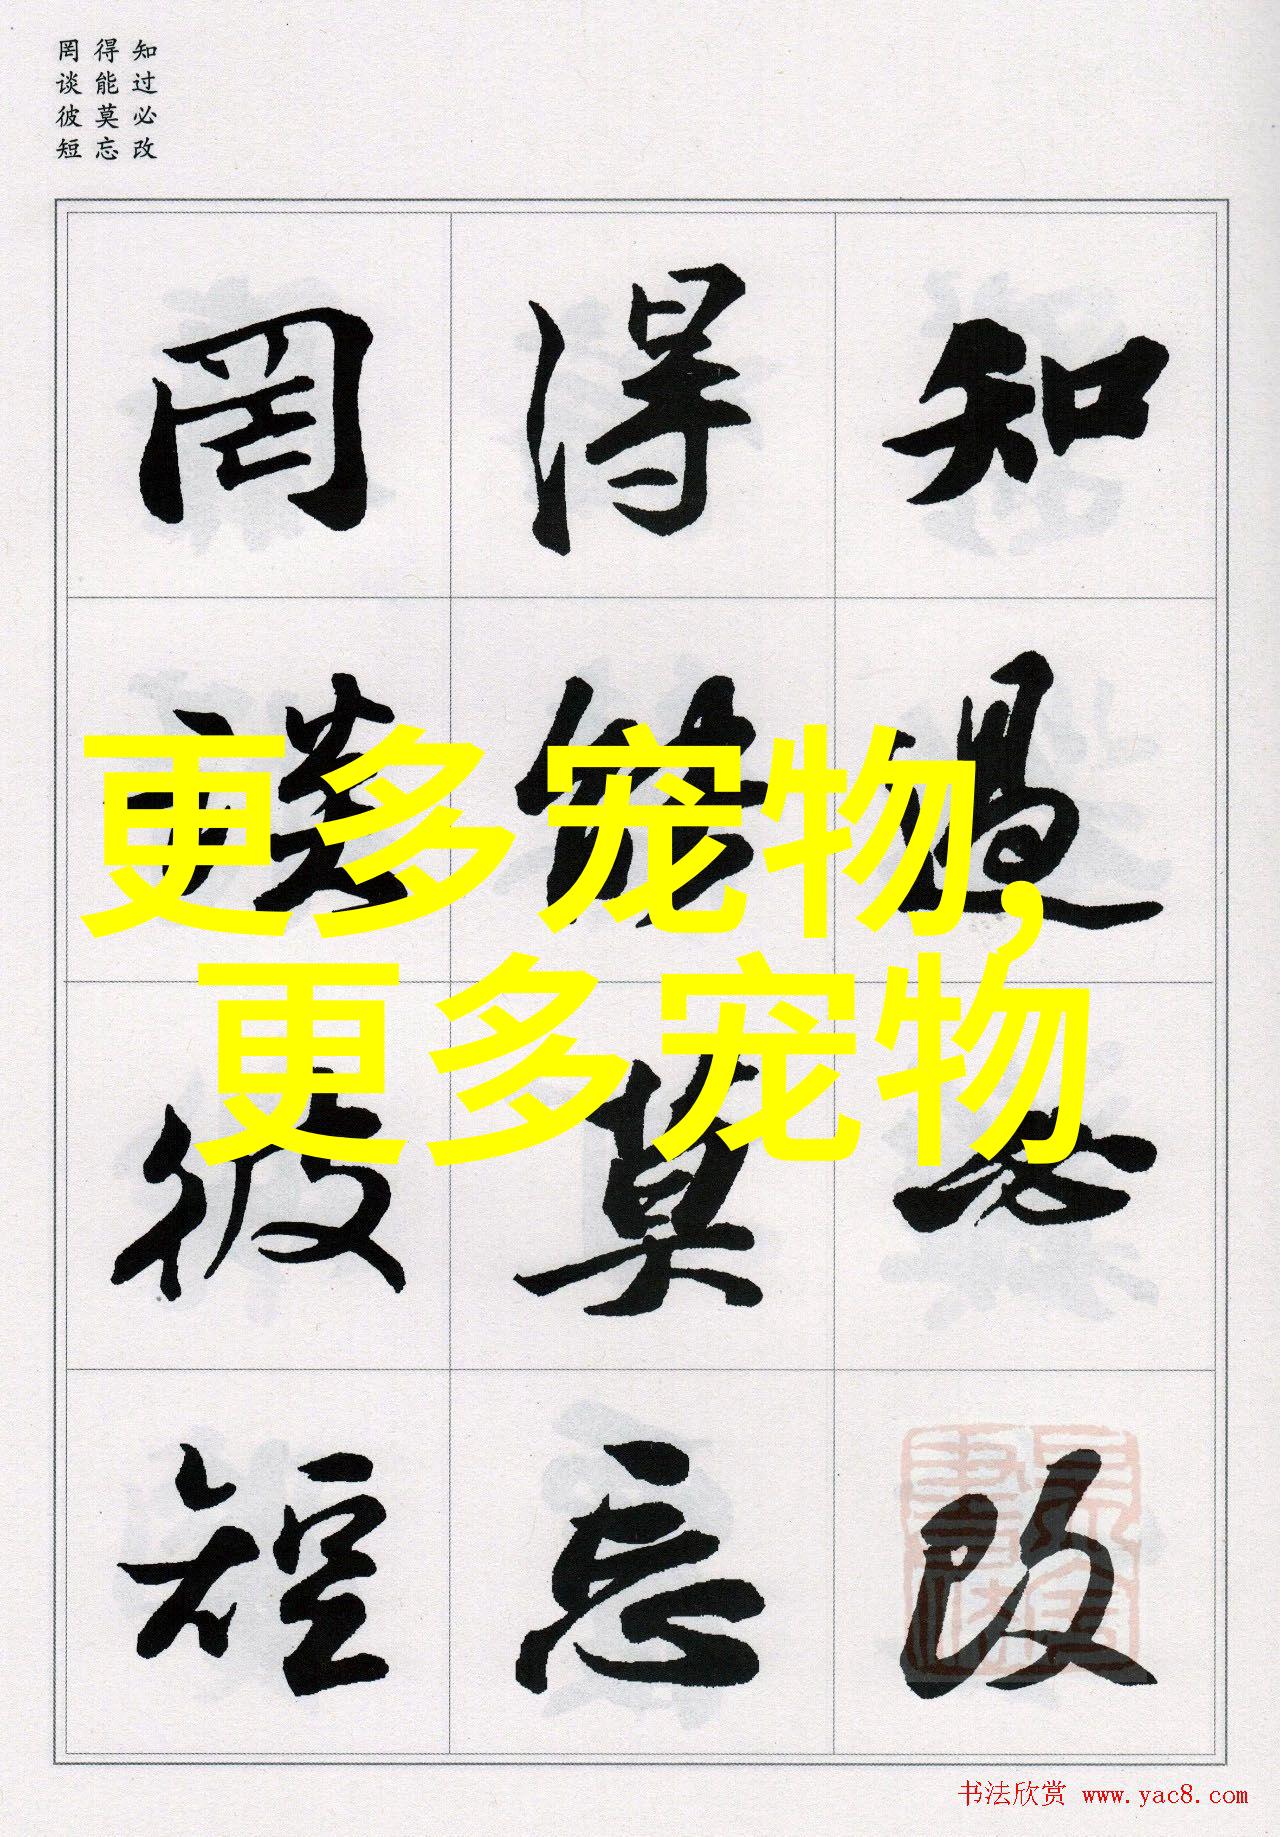 知过必改
得能莫忘
罔谈彼短
知過必改
得能莫忘
罔談彼短
更多宠物,
更多宠物
书法欣赏 www.yac8.com